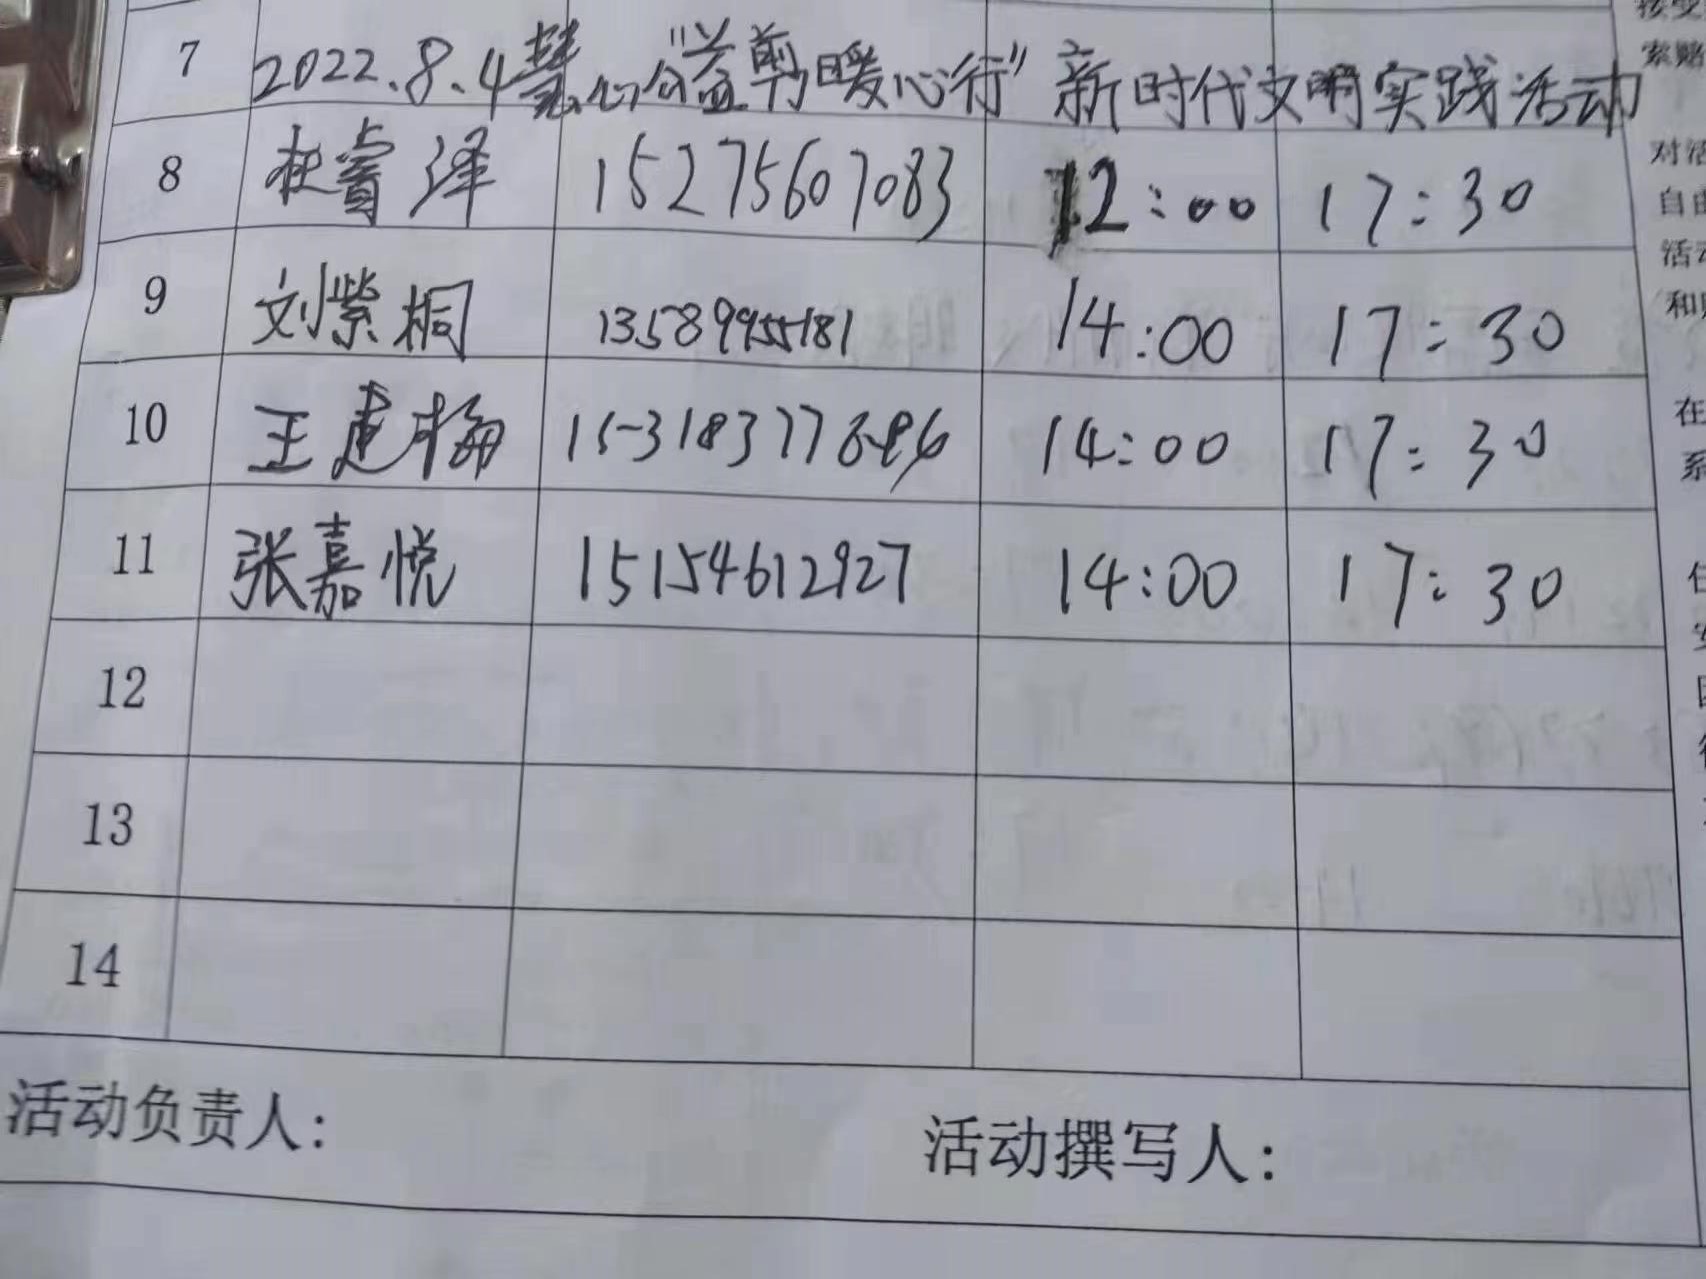 7 2022.8.4慧心公益"益剪暖心行"新时代文明实践活动
8 杜睿泽 15275607083 12:00 17:30
9 刘紫桐 13589955181 14:00 17:30
10 王建梅 14:00 17:30
11 张嘉悦 15154612927 14:00 17:30
12
13
14
活动负责人: 活动撰写人:
索赔
对活
自由
活动
和
在
系